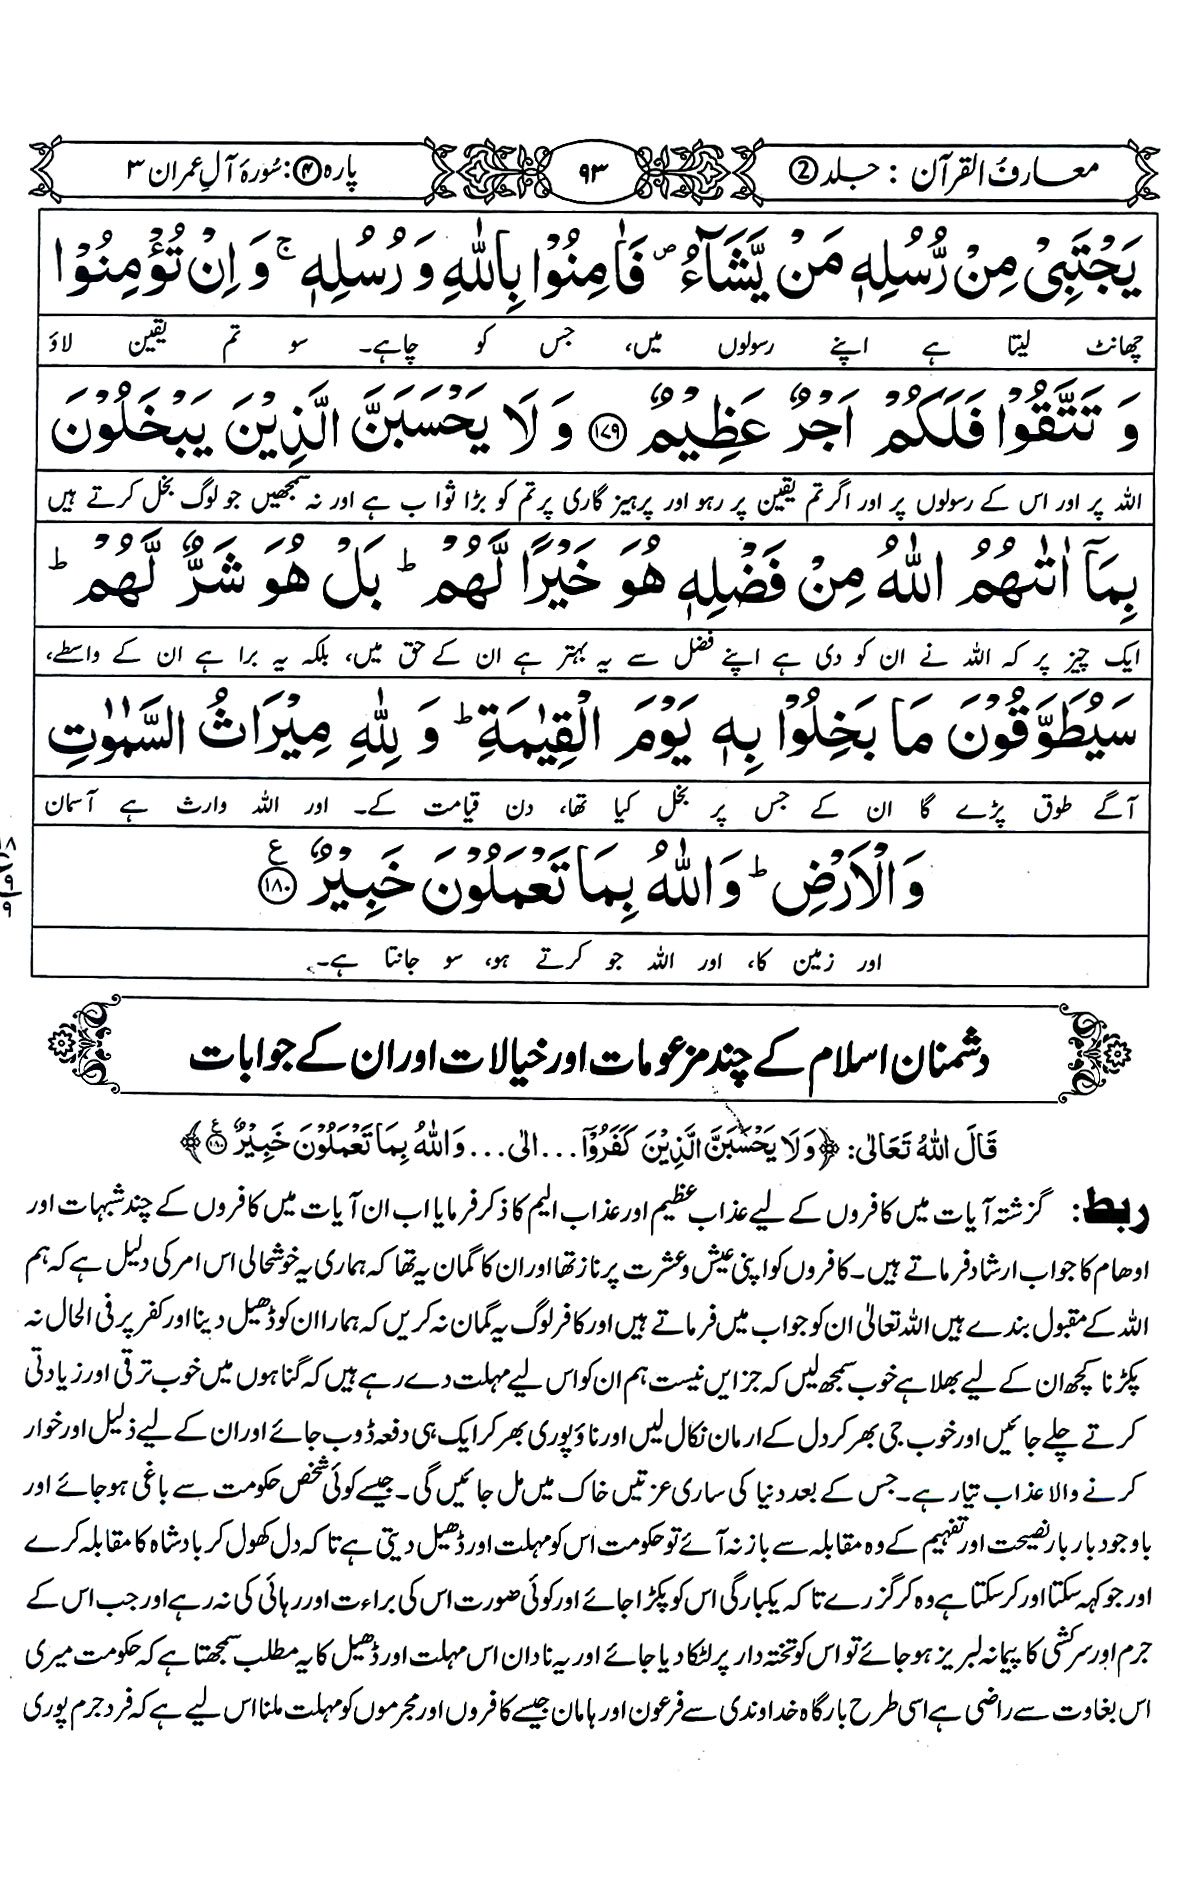 معارفُ القرآن : جلد 2
۹۳
پارہ ۴: سُورۂ آلِ عمران ۳
يَجْتَبِىْ مِنْ رُّسُلِهٖ مَنْ يَّشَآءُ ۖ فَاٰمِنُوْا بِاللّٰهِ وَ رُسُلِهٖ ۚ وَ اِنْ تُؤْمِنُوْا
چھانٹ لیتا ہے اپنے رسولوں میں، جس کو چاہے۔ سو تم یقین لاؤ
وَ تَتَّقُوْا فَلَكُمْ اَجْرٌ عَظِيْمٌ ۝۱۷۹ وَ لَا يَحْسَبَنَّ الَّذِيْنَ يَبْخَلُوْنَ
اللہ پر اور اس کے رسولوں پر اور اگر تم یقین پر رہو اور پرہیز گاری پر تم کو بڑا ثواب ہے اور نہ سمجھیں جو لوگ بخل کرتے ہیں
بِمَآ اٰتٰىهُمُ اللّٰهُ مِنْ فَضْلِهٖ هُوَ خَيْرًا لَّهُمْ ؕ بَلْ هُوَ شَرٌّ لَّهُمْ ؕ
ایک چیز پر کہ اللہ نے ان کو دی ہے اپنے فضل سے یہ بہتر ہے ان کے حق میں، بلکہ یہ برا ہے ان کے واسطے،
سَيُطَوَّقُوْنَ مَا بَخِلُوْا بِهٖ يَوْمَ الْقِيٰمَةِ ؕ وَ لِلّٰهِ مِيْرَاثُ السَّمٰوٰتِ
آگے طوق پڑے گا ان کے جس پر بخل کیا تھا، دن قیامت کے۔ اور اللہ وارث ہے آسمان
وَ الْاَرْضِ ؕ وَ اللّٰهُ بِمَا تَعْمَلُوْنَ خَبِيْرٌ ۝۱۸۰ ع
اور زمین کا، اور اللہ جو کرتے ہو، سو جانتا ہے۔
دشمنان اسلام کے چند مزعومات اور خیالات اور ان کے جوابات
قَالَ اللّٰهُ تَعَالٰى: ﴿وَلَا يَحْسَبَنَّ الَّذِيْنَ كَفَرُوْٓا ... الٰى ... وَاللّٰهُ بِمَا تَعْمَلُوْنَ خَبِيْرٌ ۝۱۸۰﴾
ربط: گزشتہ آیات میں کافروں کے لیے عذاب عظیم اور عذاب الیم کا ذکر فرمایا اب ان آیات میں کافروں کے چند شبہات اور
اوہام کا جواب ارشاد فرماتے ہیں۔ کافروں کو اپنی عیش و عشرت پر ناز تھا اور ان کا گمان یہ تھا کہ ہماری یہ خوشحالی اس امر کی دلیل ہے کہ ہم
اللہ کے مقبول بندے ہیں اللہ تعالیٰ ان کو جواب میں فرماتے ہیں اور کافر لوگ یہ گمان نہ کریں کہ ہمارا ان کو ڈھیل دینا اور کفر پر فی الحال نہ
پکڑنا کچھ ان کے لیے بھلا ہے خوب سمجھ لیں کہ جز ایں نیست ہم ان کو اس لیے مہلت دے رہے ہیں کہ گناہوں میں خوب ترقی اور زیادتی
کرتے چلے جائیں اور خوب جی بھر کر دل کے ارمان نکال لیں اور ناؤ پوری بھر کر ایک ہی دفعہ ڈوب جائے اور ان کے لیے ذلیل اور خوار
کرنے والا عذاب تیار ہے۔ جس کے بعد دنیا کی ساری عزتیں خاک میں مل جائیں گی۔ جیسے کوئی شخص حکومت سے باغی ہو جائے اور
باوجود بار بار نصیحت اور تفہیم کے وہ مقابلہ سے باز نہ آئے تو حکومت اس کو مہلت اور ڈھیل دیتی ہے تا کہ دل کھول کر بادشاہ کا مقابلہ کرے
اور جو کہہ سکتا اور کر سکتا ہے وہ کر گزرے تا کہ یکبارگی اس کو پکڑا جائے اور کوئی صورت اس کی براءت اور رہائی کی نہ رہے اور جب اس کے
جرم اور سرکشی کا پیمانہ لبریز ہو جائے تو اس کو تختہ دار پر لٹکا دیا جائے اور یہ نادان اس مہلت اور ڈھیل کا یہ مطلب سمجھتا ہے کہ حکومت میری
اس بغاوت سے راضی ہے اسی طرح بارگاہ خداوندی سے فرعون اور ہامان جیسے کافروں اور مجرموں کو مہلت ملنا اس لیے ہے کہ فرد جرم پوری